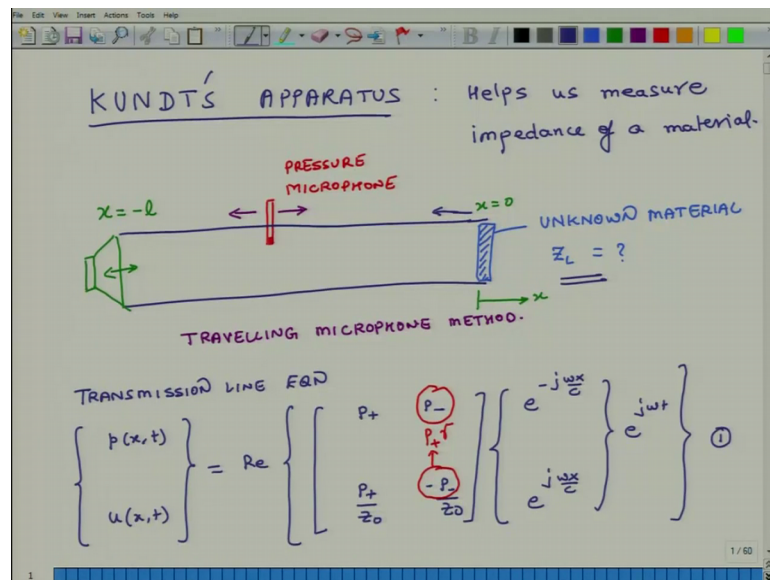 File Edit View Insert Actions Tools Help
KUNDT'S APPARATUS : Helps us measure
impedance of a material.
PRESSURE
MICROPHONE
x=-l
x=0
UNKNOWN MATERIAL
Z_L = ?
x
TRAVELLING MICROPHONE METHOD.
TRANSMISSION LINE EQN
{ p(x,t) } = Re { [ P+ P- ] { e^{-jωx/c} } e^{jωt} } ①
P+r
{ u(x,t) } [ P+/Z0 -P-/Z0 ] { e^{jωx/c} }
1 / 60
1